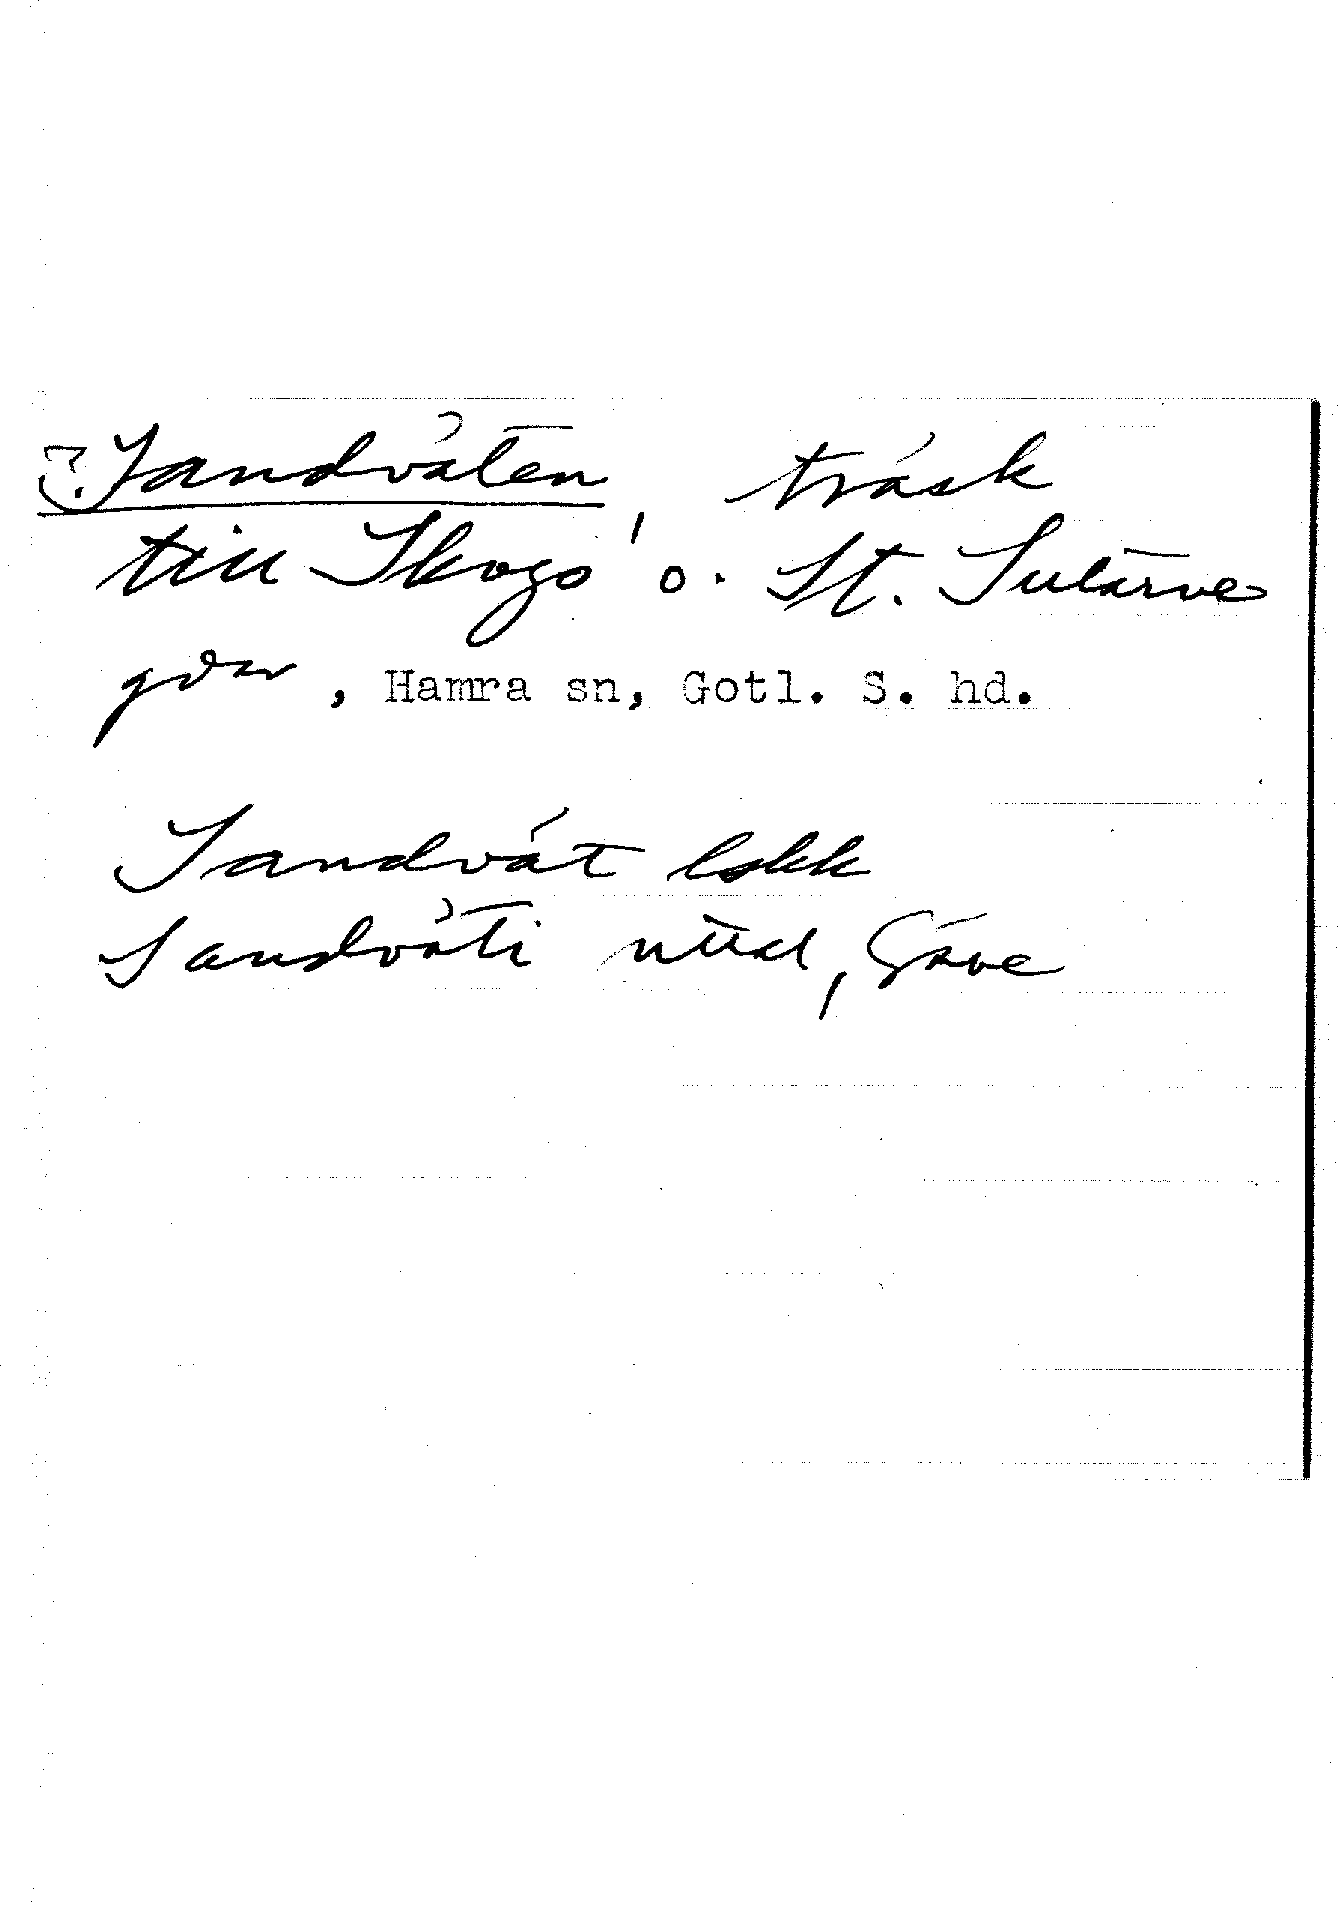 ?.Sandväten, träsk
till Skogs o. St. Sutarve
gdar, Hamra sn, Gotl. S. hd.
Sandvät lokk
Sandväti nüd, Gäve